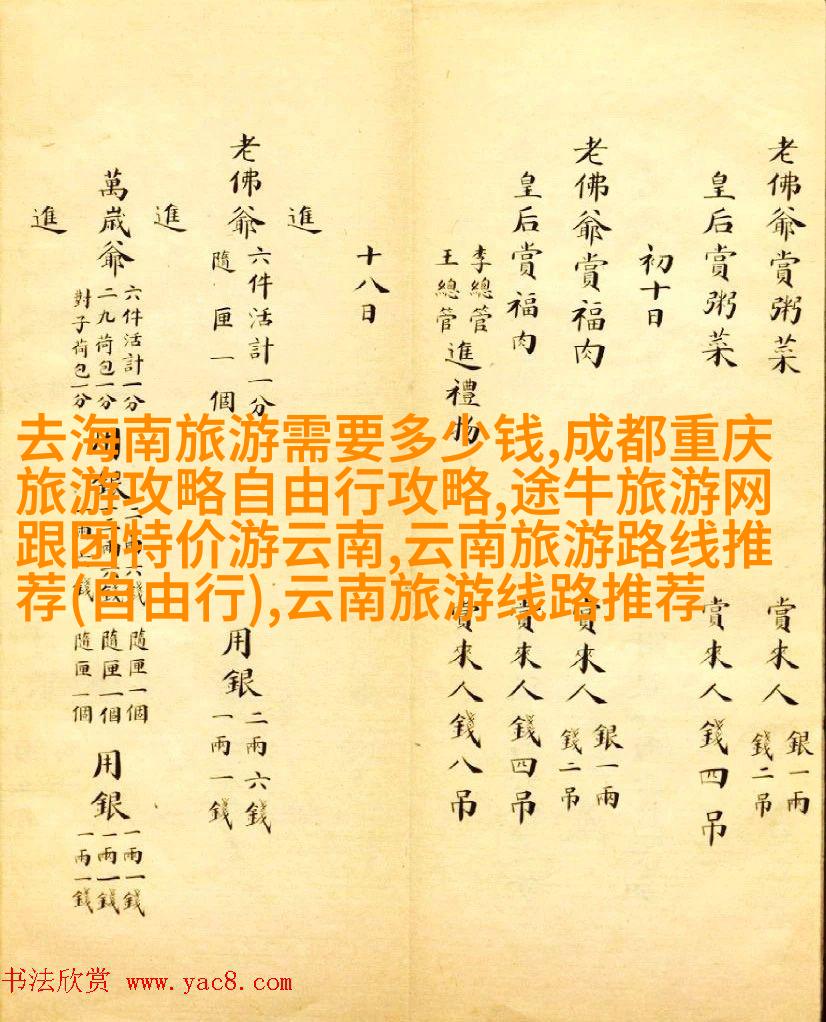 老佛爺賞粥菜 賞來人 銀一兩
錢二吊
皇后賞粥菜 賞來人錢四吊
初十日
老佛爺賞福肉 賞來人 銀一兩
錢二吊
皇后賞福肉 賞來人錢四吊
李總管
王總管
進禮物 賞來人錢八吊
十八日
進
老佛爺 六件活計一分
隨匣一個
用銀 二兩六錢
一兩一錢
進
萬歲爺 六件活計一分
二九荷包一分
對子荷包一分
用銀
隨匣一個
隨匣一個
隨匣一個
用銀 一兩一錢
一兩一錢
一兩一錢
進
去海南旅游需要多少钱,成都重庆
旅游攻略自由行攻略,途牛旅游网
跟团特价游云南,云南旅游路线推
荐(自由行),云南旅游线路推荐
书法欣赏 www.yac8.com